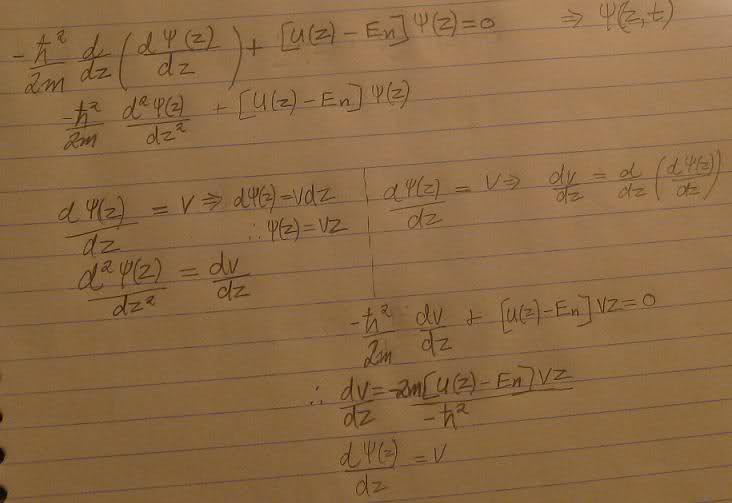 -ħ²/2m d/dz (dΨ(z)/dz) + [U(z) - En] Ψ(z) = 0 ⇒ Ψ(z,t)
-ħ²/2m d²Ψ(z)/dz² + [U(z) - En] Ψ(z)
dΨ(z)/dz = V ⇒ dΨ(z) = Vdz
∴ Ψ(z) = VZ
d²Ψ(z)/dz² = dv/dz
dΨ(z)/dz = V ⇒ dv/dz = d/dz (dΨ(z)/dz)
-ħ²/2m dv/dz + [U(z) - En] VZ = 0
∴ dv/dz = -2m[U(z) - En] VZ/-ħ²
dΨ(z)/dz = V